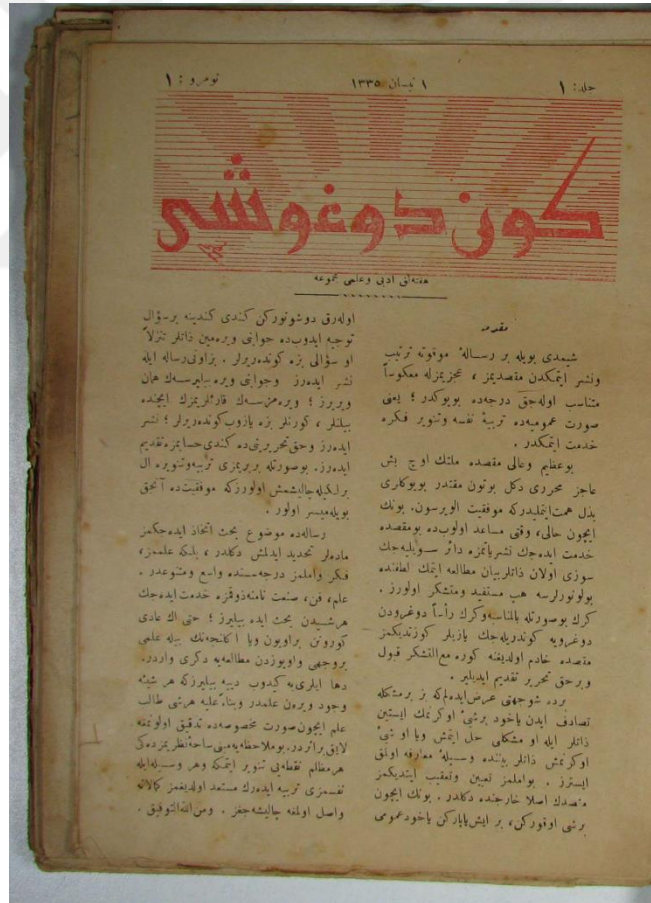 جلد: ١
١ نیسان ١٣٣٥
نومرو : ١
كون دوغوشی
هفته‌لق ادبی وعلمی مجموعه
مقدمه
شیمدی بویله بر رسالهٔ موقوته ترتیب
ونشر ایتمكدن مقصدیمز ، عجزیمزله معكوساً
متناسب اوله‌جق درجه‌ده بویوكدر ؛ یعنی
صورت عمومیه‌ده تربیهٔ نفسه وتنویر فكره
خدمت ایتمكدر .
بوعظیم وعالی مقصده ملتك اوچ بش
عاجز محرری دكل بوتون مقتدر بویوكلری
بذل همت‌ایتملیدركه موفقیت الویرسون. بونك
ایچون حالی، وقتی مساعد اولوب‌ده بومقصده
خدمت ایده‌جك نشریاتمزه دائر سویلیه‌جك
سوزی اولان ذاتلربیان مطالعه ایتمك لطفنده
بولونورلرسه هپ مستفید ومتشكر اولورز .
كرك بوصورتله بالمناسبه‌وكرك رأساً دوغرودن
دوغرویه كوندریله‌جك یازیلر كوزتدیكمز
مقصده خادم اولدیغنه كوره مع‌التشكر قبول
وبرحق تحریر تقدیم ایدیلیر .
برده شوجهتی عرض‌ایده‌لم‌كه بز برمشكله
تصادف ایدن یاخود برشی‌ٔ اوكرنمك ایستین
ذاتلر ایله او مشكلی حل ایتمش ویا او شی‌ٔ
اوكرنمش ذاتلر بیننده وسیلهٔ معارفه اولمق
ایسترز . بواملمز تعیین وتعقیب ایتدیكمز
مقصدك اصلا خارجنده دكلدر . بونك ایچون
برشی اوقوركن، بر ایش‌یاپاركن یاخودعمومی
اوله‌رق دوشونوركن كندی كندینه بر سؤال
توجیه ایدوب‌ده جوابنی ویره‌مین ذاتلر تنزلاً
او سؤالی بزه كونده‌ریرلر . بزاونی‌رساله ایله
نشر ایدەرز وجوابنی ویره بیلیرسه‌ك همان
ویریرز ؛ ویره‌مزسه‌ك قارئلریمزك ایچنده
بیلنلر ، كورنلر بزه یازوب‌كونده‌ریرلر ؛ نشر
ایده‌رز وحق‌تحریرینی‌ده كندی‌حسابمزه‌تقدیم
ایده‌رز. بوصورتله بربریمزی تربیه‌وتنویره ال
برلكیله‌چالیشمش اولورزكه موفقیت‌ده آنجق
بویله‌میسر اولور .
رساله‌ده موضوع بحث اتخاذ ایده‌جكمز
ماده‌لر تحدید ایدلمش دكلدر ، بلكه علممز،
فكر واملمز درجه‌سنده واسع ومتنوعدر .
علم، فن، صنعت نامنه‌ذوقمزه خدمت ایده‌جك
هرشیدن بحث ایده بیلیرز ؛ حتی اك عادی
كورونن براویون ویا اكلنجه‌نك بیله علمی
بروجهی واویوزدن مطالعه‌یه دكری واردر.
دها ایلری‌یه كیدوب دییه بیلیرزكه هر شیئه
وجود ویره‌ن علمدر وبناءً علیه هرشی طالب
علم ایچون‌صورت مخصوصه‌ده تدقیق اولونمغه
لایق براثردر. بوملاحظه‌یه‌مبنی‌ساحهٔ‌نظریمزده‌كی
هرمظلم نقطه‌یی تنویر ایتمكه وهر وسیله‌ایله
نفسمزی تربیه ایده‌رك مستعد اولدیغمز كمالاته
واصل اولمغه چالیشه‌جغز . ومن‌الله‌التوفیق .